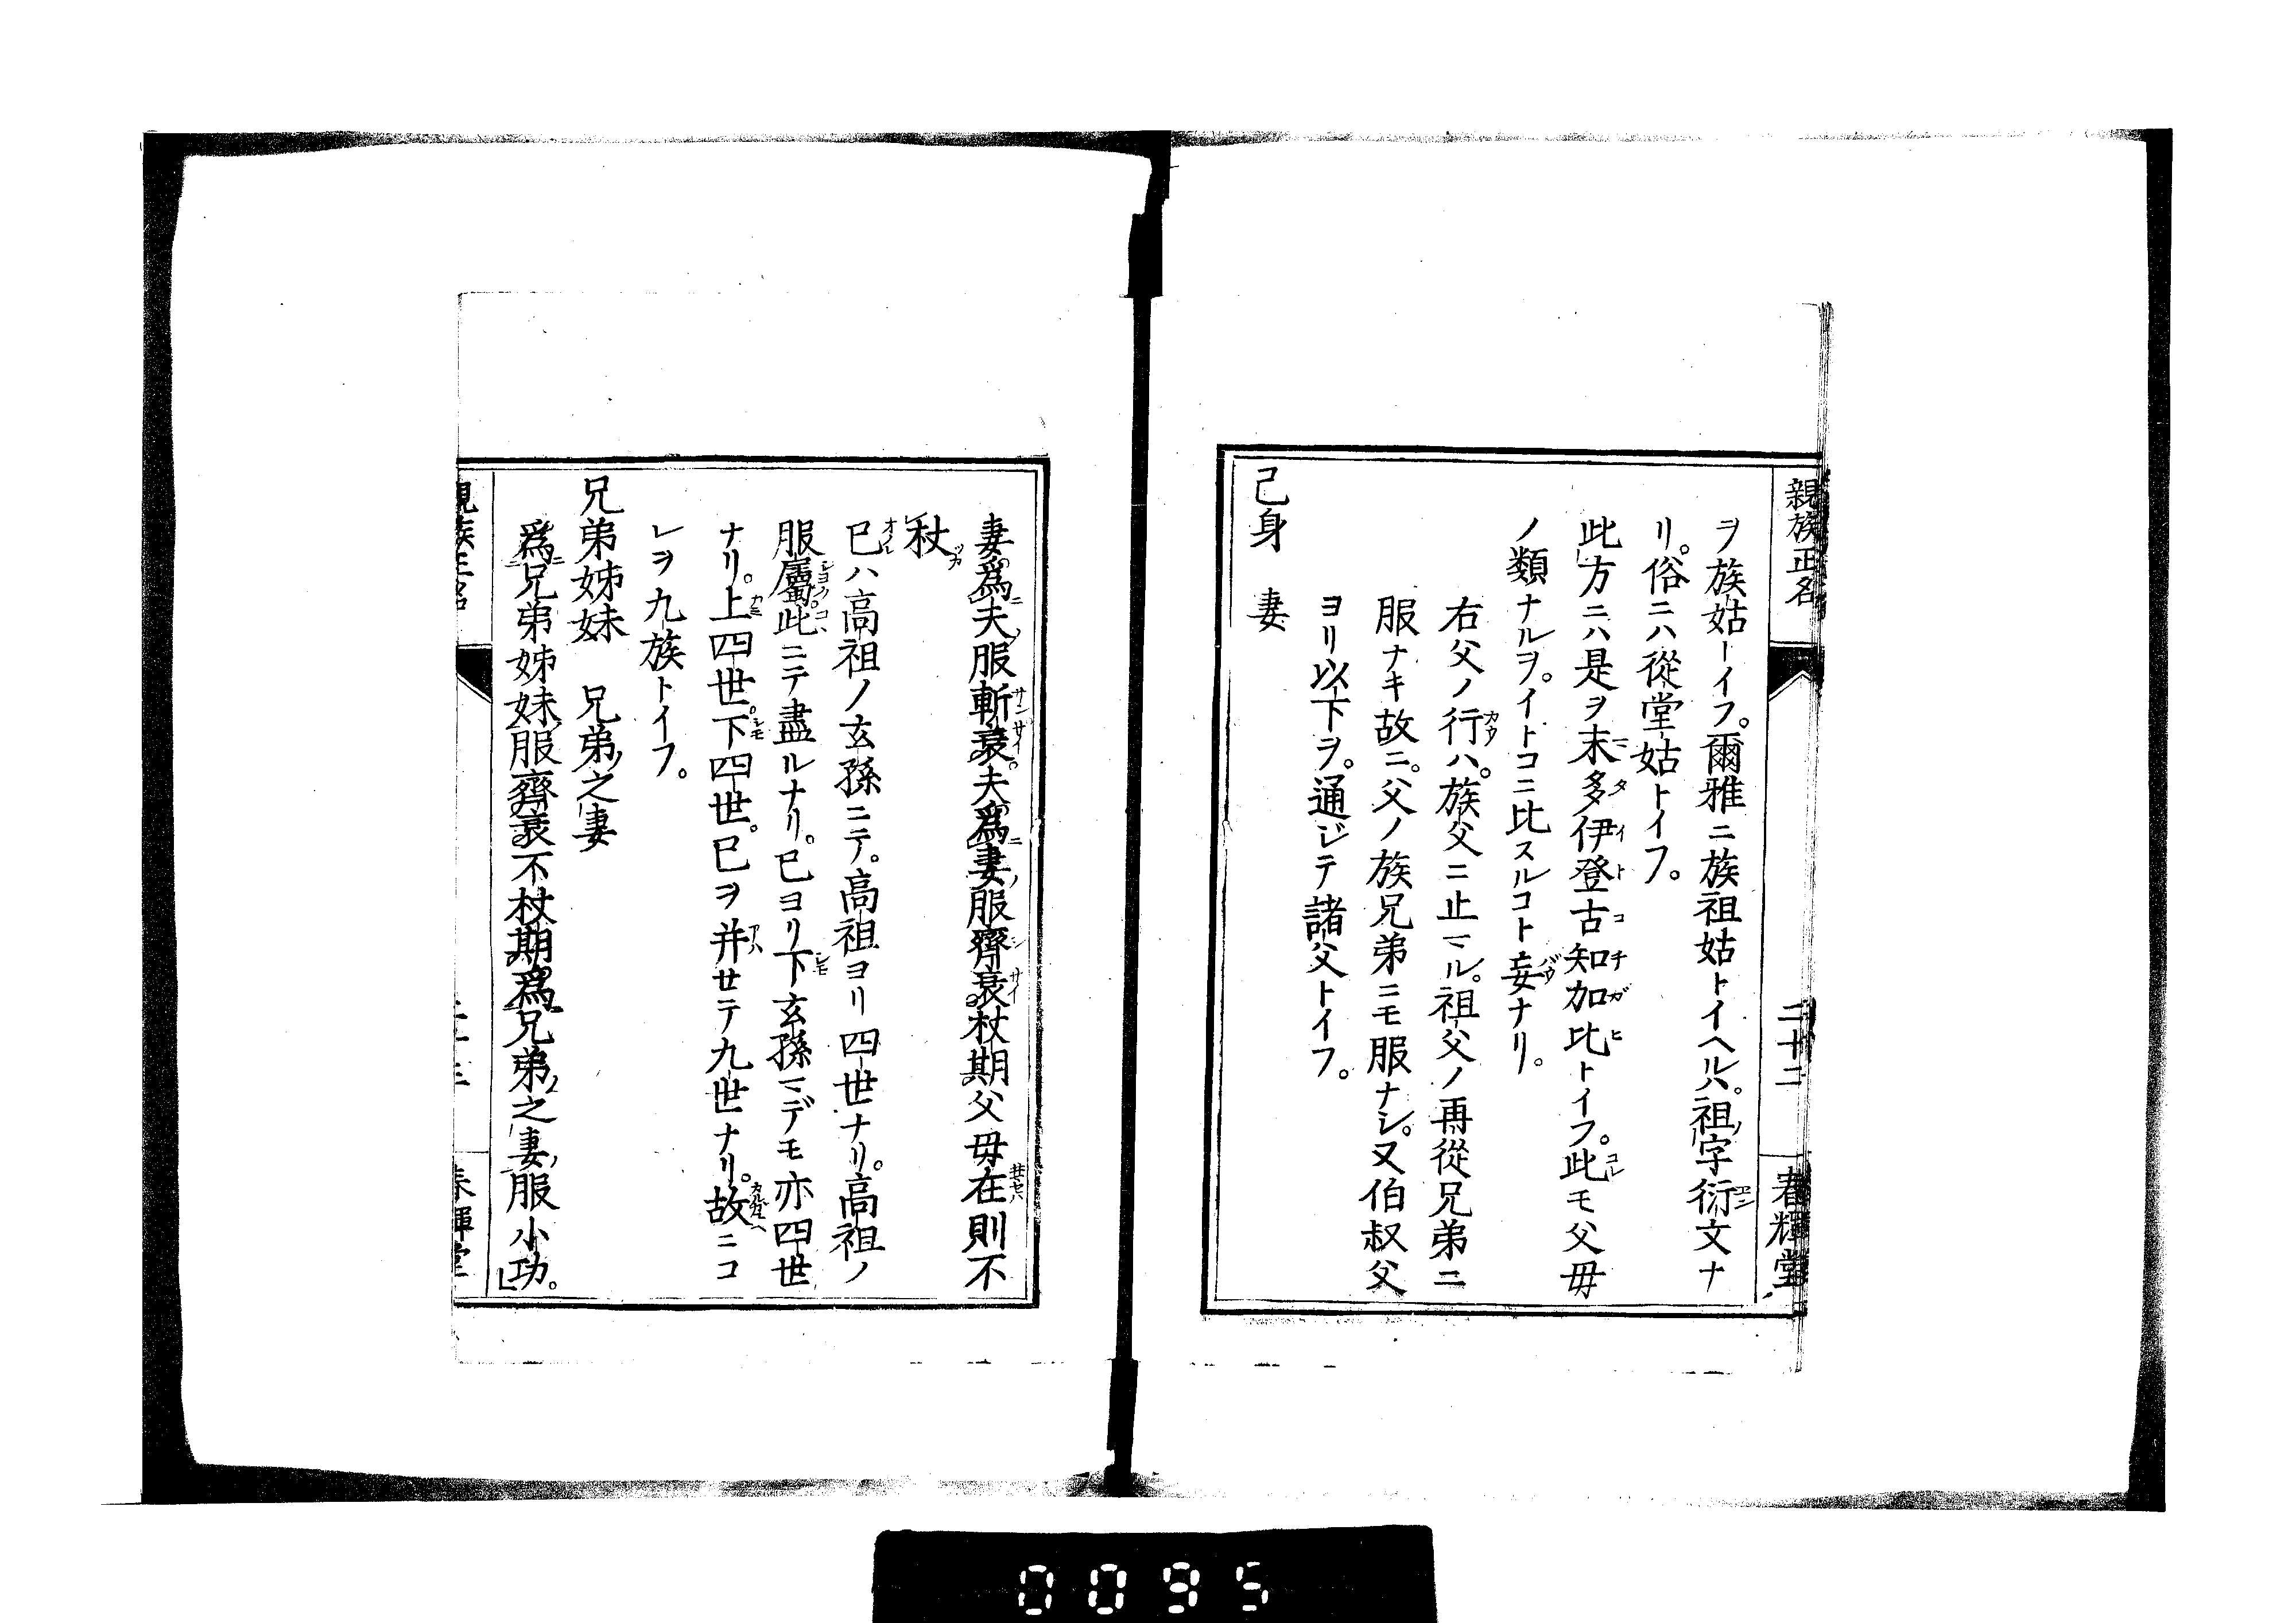 親族正名
二十二
春輝堂
ヲ族姑トイフ。爾雅ニ族祖姑トイヘルハ。祖ノ字衍文ナ
リ。俗ニハ從堂姑トイフ。
此方ニハ是ヲ末多伊登古知加比トイフ。此モ父母
ノ類ナルヲ。イトコニ比スルコト妄ナリ。
右父ノ行ハ。族父ニ止マル。祖父ノ再從兄弟ニ
服ナキ故ニ。父ノ族兄弟ニモ服ナシ。又伯叔父
ヨリ以下ヲ。通ジテ諸父トイフ。
己身 妻
妻爲夫服斬衰。夫爲妻服齊衰。杖期父母在則不
杖
己ハ高祖ノ玄孫ニテ。高祖ヨリ四世ナリ。高祖ノ
服屬此ニテ盡ルナリ。己ヨリ下玄孫マデモ亦四世
ナリ。上四世。下四世。己ヲ并セテ九世ナリ。故ニコ
レヲ九族トイフ。
兄弟姊妹 兄弟之妻
爲兄弟姊妹服齊衰不杖期爲兄弟之妻服小功。
親族正名
春輝堂
0095